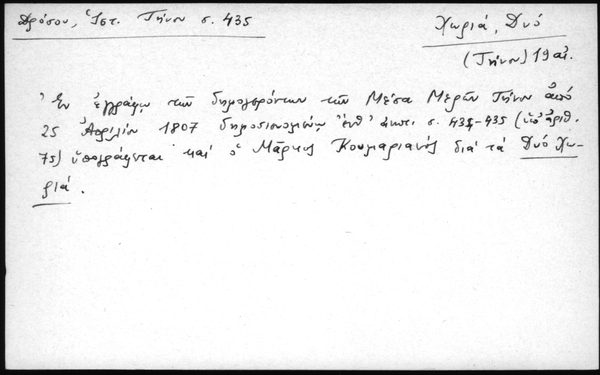 Δρόσου, Ἱστ. Τήνου σ. 435
Χωριά, Δυό
(Τήνου) 19 αἰ.
Ἐν ἐγγράφῳ τῶν δημογερόντων τῶν Μέσα Μερῶν Τήνου ἀπό
25 Ἀπριλίου 1807 δημοσιευομένῳ ἐνθ' ἀνωτ. σ. 434-435 (ὑπ' ἀριθ.
75) ὑπογράφεται καί ὁ Μᾶρκος Κουμαριανός διά τά Δυό Χω-
ριά.